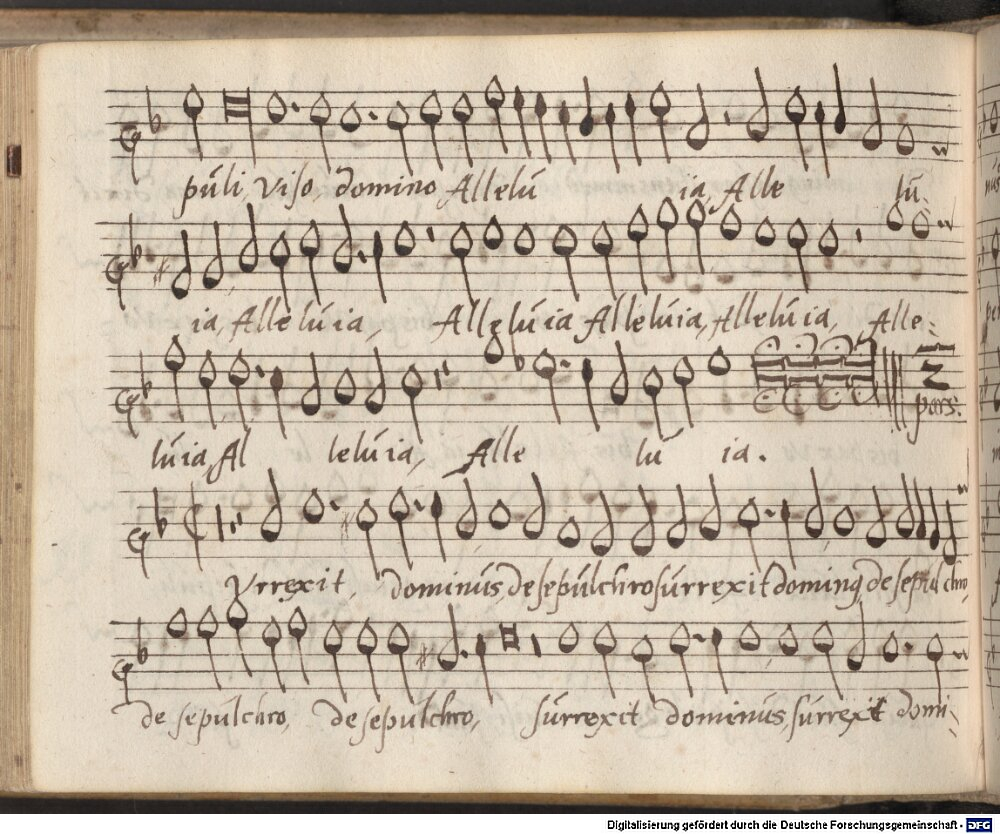 puli, viso, domino Allelu ia, Alle lu:
ia, Alleluia, Alleluia Alleluia, Alleluia, Alle:
luia, Al leluia, Alle lu ia.
2
pars:
Vrrexit, dominus, de sepulchro surrexit doming de sepul chro,
de sepulchro, de sepulchro, surrexit dominus, surrexit domi:
Digitalisierung gefördert durch die Deutsche Forschungsgemeinschaft - DFG